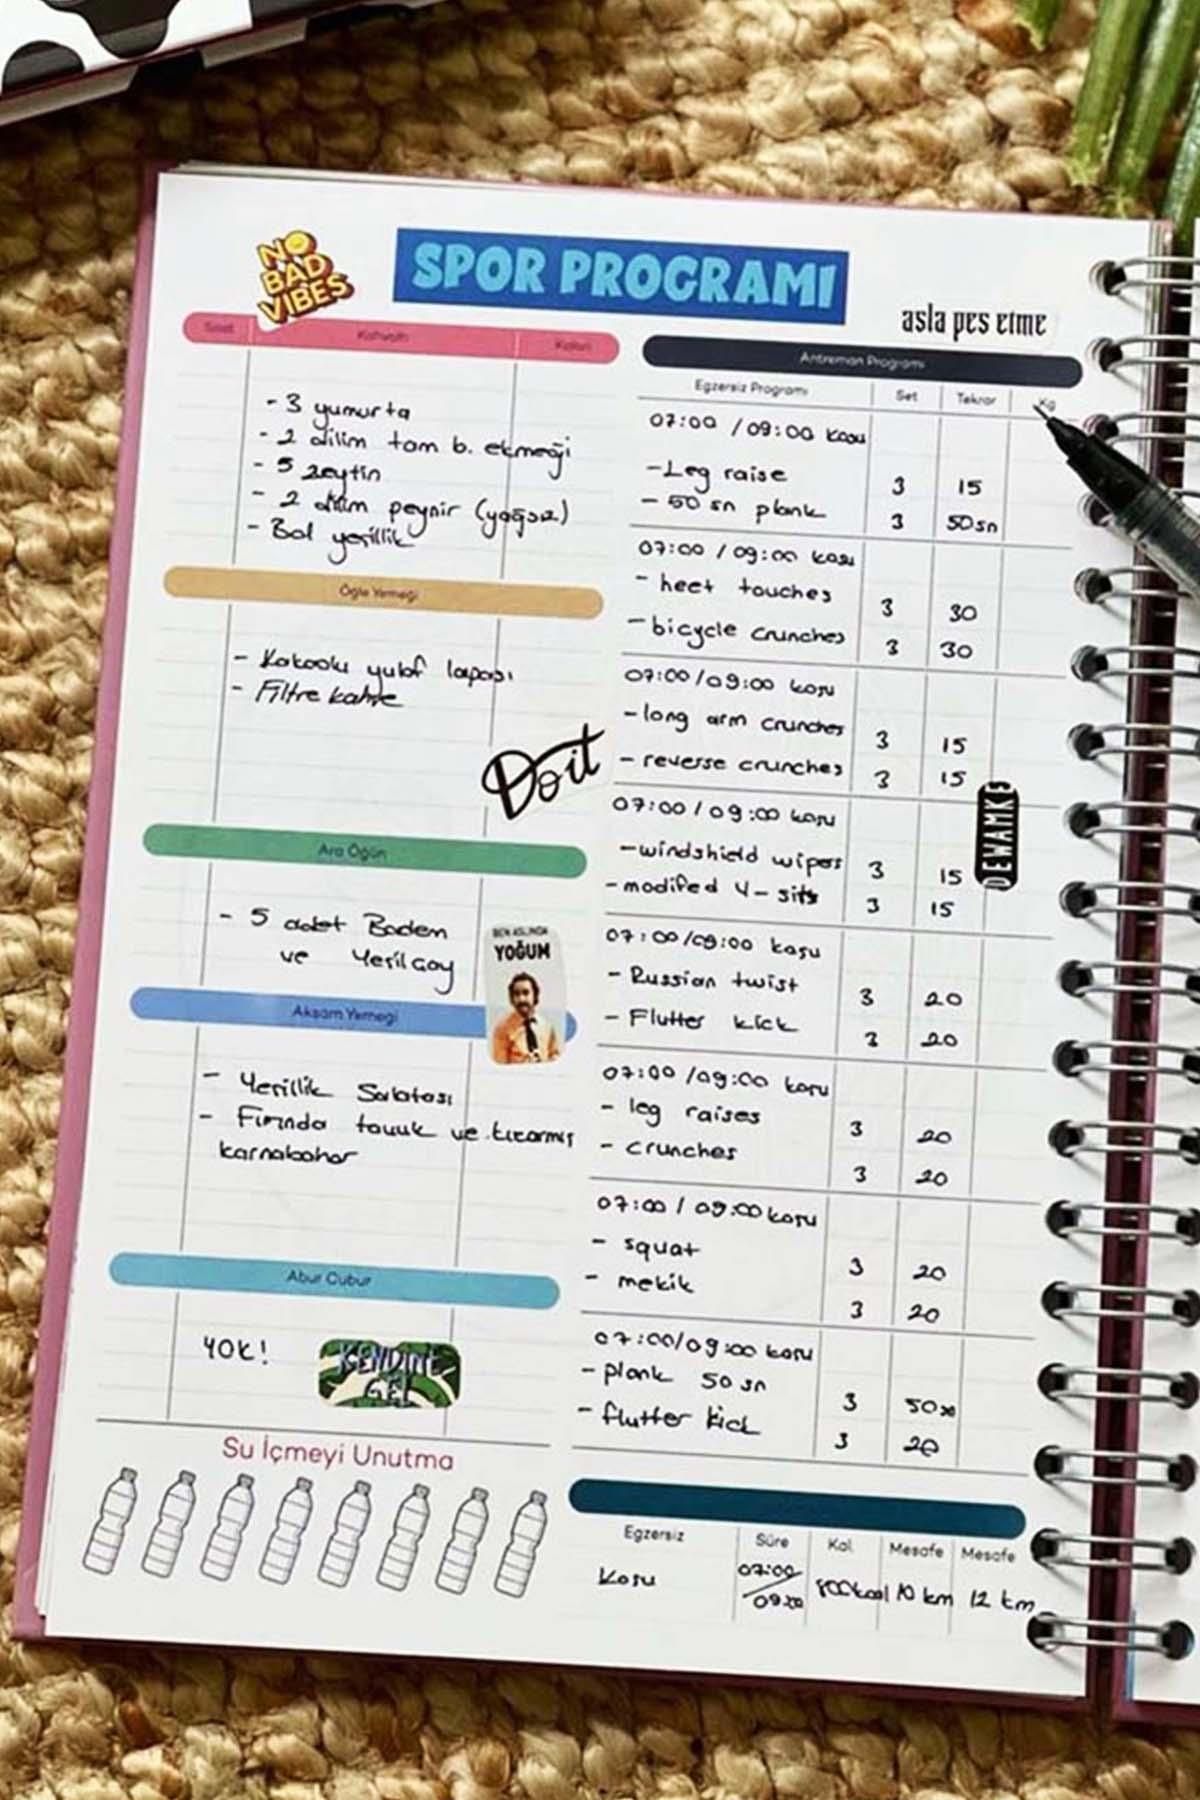 NO
BAD
VIBES
SPOR PROGRAMI
asla pes etme
Saat Kahvaltı Kalori
- 3 yumurta
- 2 dilim tam b. ekmeği
- 5 zeytin
- 2 dilim peynir (yağsız)
- Bol yeşillik
Öğle Yemeği
- Kakaolu yulaf lapası
- Filtre kahve
Do it
Ara Öğün
- 5 adet Badem
ve Yeşilçay
BEN ASLINDA
YOĞUM
Akşam Yemeği
- Yeşillik Salatası
- Fırında tavuk ve kızarmış
karnabahar
Abur Cubur
YOK!
KENDİNE
GEL
Su İçmeyi Unutma
Antreman Programı
Egzersiz Programı Set Tekrar Kg
07:00 / 09:00 koşu
- Leg raise 3 15
- 50 sn plank 3 50sn
07:00 / 09:00 koşu
- heet touches 3 30
- bicycle crunches 3 30
07:00 / 09:00 koşu
- long arm crunches 3 15
- reverse crunches 3 15
07:00 / 09:00 koşu
- windshield wipers 3 15
- modifed V - sits 3 15
DEWAMKE
07:00/09:00 koşu
- Russian twist 3 20
- Flutter kick 3 20
07:00 / 09:00 koşu
- leg raises 3 20
- crunches 3 20
07:00 / 09:00 koşu
- squat 3 20
- mekik 3 20
07:00/09:00 koşu
- plank 50 sn 3 50sn
- flutter kick 3 20
Egzersiz Süre Kal Mesafe Mesafe
Koşu 07:00/09:00 800kcal 10 km 12 km